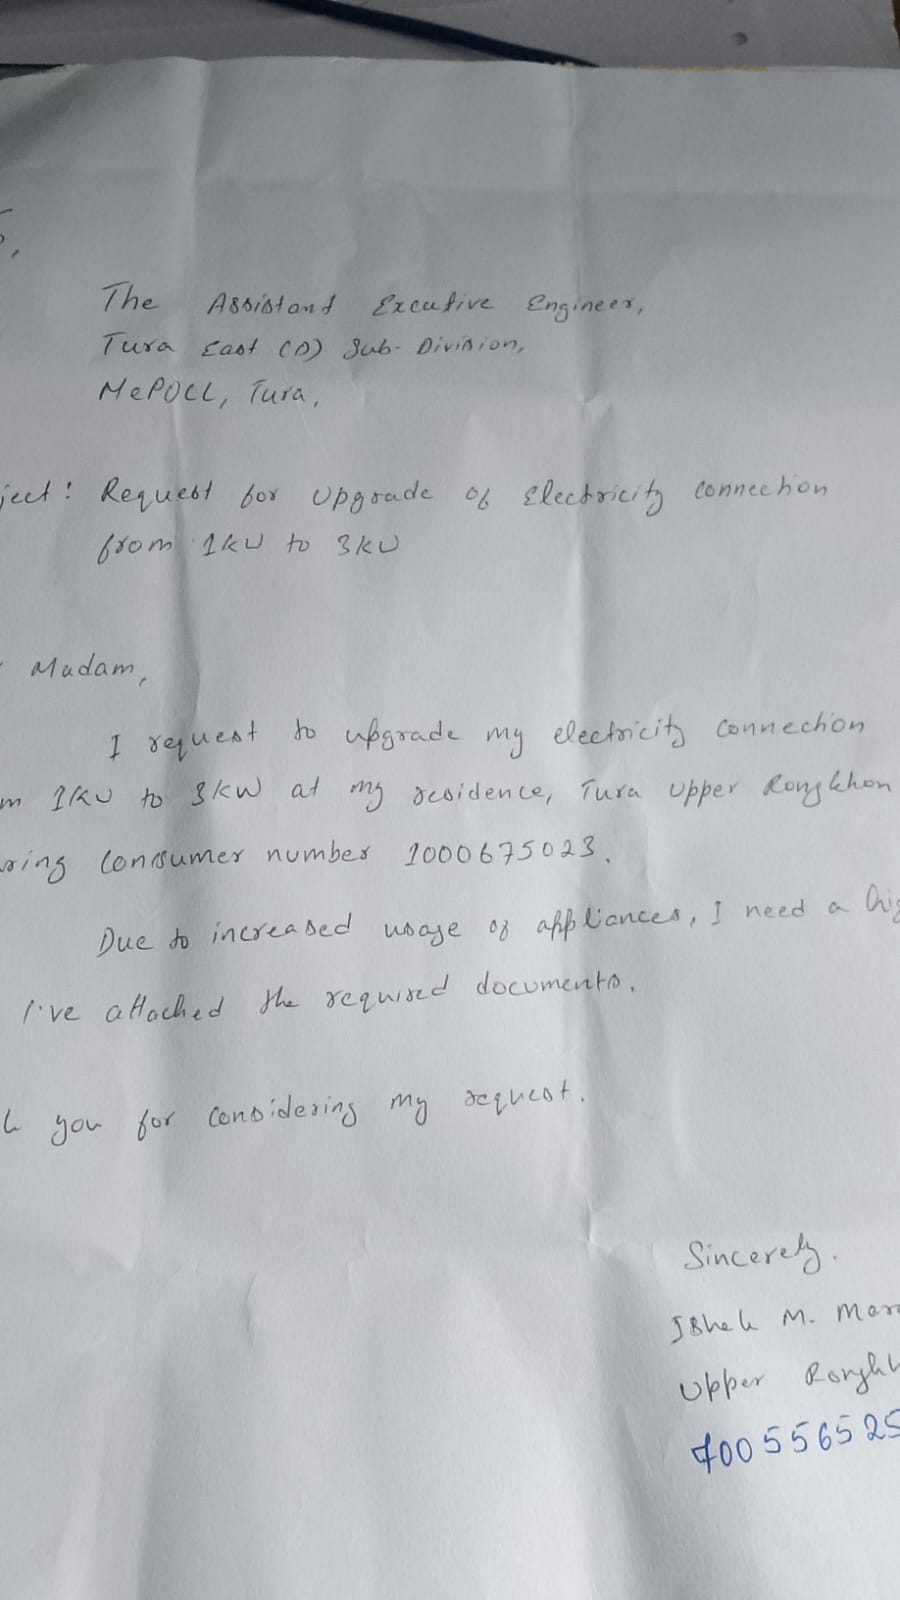 The Assistant Excutive Engineer,
Tura East (D) Sub-Division,
MePDCL, Tura,
ject: Request for Upgrade of Electricity connection
from 1kW to 3kW
Madam,
I request to upgrade my electricity connection
m 1kW to 3kW at my residence, Tura Upper Rongkhon
ring Consumer number 1000675023.
Due to increased usage of appliances, I need a hig
I've attached the required documents.
you for considering my request.
Sincerely.
M.
Upper Rongkh
700556525